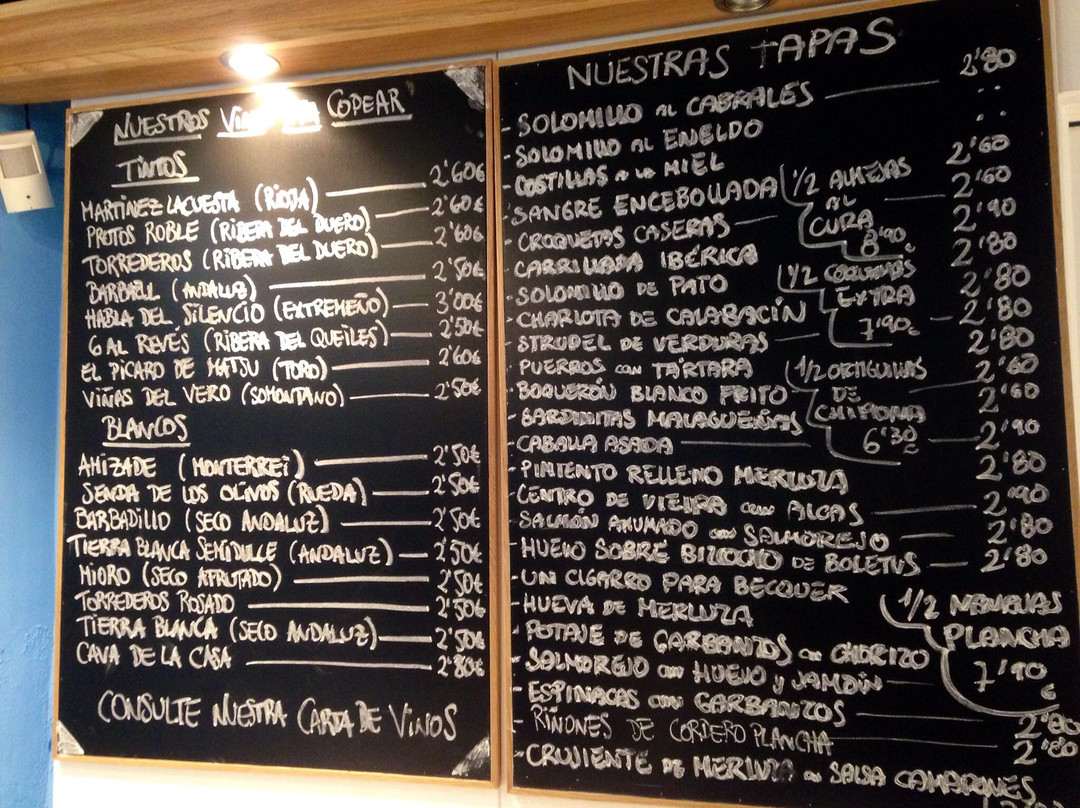 NUESTROS VINOS PARA COPEAR
TINTOS
MARTINEZ LACUESTA (RIOJA) 2'60€
PROTOS ROBLE (RIBERA DEL DUERO) 2'60€
TORREDEROS (RIBERA DEL DUERO) 2'60€
BARBAZUL (ANDALUZ) 2'50€
HABLA DEL SILENCIO (EXTREMEÑO) 3'00€
G AL REVÉS (RIBERA DEL QUEILES) 2'50€
EL PÍCARO DE MATSU (TORO) 2'60€
VIÑAS DEL VERO (SOMONTANO) 2'50€
BLANCOS
AMIZADE (MONTERREI) 2'50€
SENDA DE LOS OLIVOS (RUEDA) 2'50€
BARBADILLO (SECO ANDALUZ) 2'50€
TIERRA BLANCA SEMIDULCE (ANDALUZ) 2'50€
MIORO (SECO AFRUTADO) 2'50€
TORREDEROS ROSADO 2'50€
TIERRA BLANCA (SECO ANDALUZ) 2'50€
CAVA DE LA CASA 2'80€
CONSULTE NUESTRA CARTA DE VINOS
NUESTRAS TAPAS
- SOLOMILLO AL CABRALES 2'80
- SOLOMILLO AL ENELDO
- COSTILLAS A LA MIEL
- SANGRE ENCEBOLLADA 2'60
- CROQUETAS CASERAS 2'60
- CARRILLADA IBÉRICA 2'90
- SOLOMILLO DE PATO 2'80
- CHARLOTA DE CALABACÍN 2'80
- STRUDEL DE VERDURAS 2'80
- PUERROS CON TÁRTARA 2'80
- BOQUERÓN BLANCO FRITO 2'60
- SARDINITAS MALAGUEÑAS 2'60
- CABALLA ASADA 2'90
- PIMIENTO RELLENO MERLUZA 2'80
- CENTRO DE VIEIRA CON ALGAS 2'90
- SALMÓN AHUMADO CON SALMOREJO 2'80
- HUEVO SOBRE BIZCOCHO DE BOLETUS 2'80
- UN CIGARRO PARA BECQUER
- HUEVA DE MERLUZA
- POTAJE DE GARBANZOS CON CHORIZO
- SALMOREJO CON HUEVO Y JAMÓN
- ESPINACAS CON GARBANZOS 2'80
- RIÑONES DE CORDERO PLANCHA 2'80
- CRUJIENTE DE MERLUZA EN SALSA CAMARONES
1/2 ALMEJAS
AL
CURA
8'90€
1/2 COQUINAS
EXTRA
7'90€
1/2 ORTIGUILLAS
DE
CHIPIONA
6'30€
1/2 NAVAJAS
PLANCHA
7'90
€